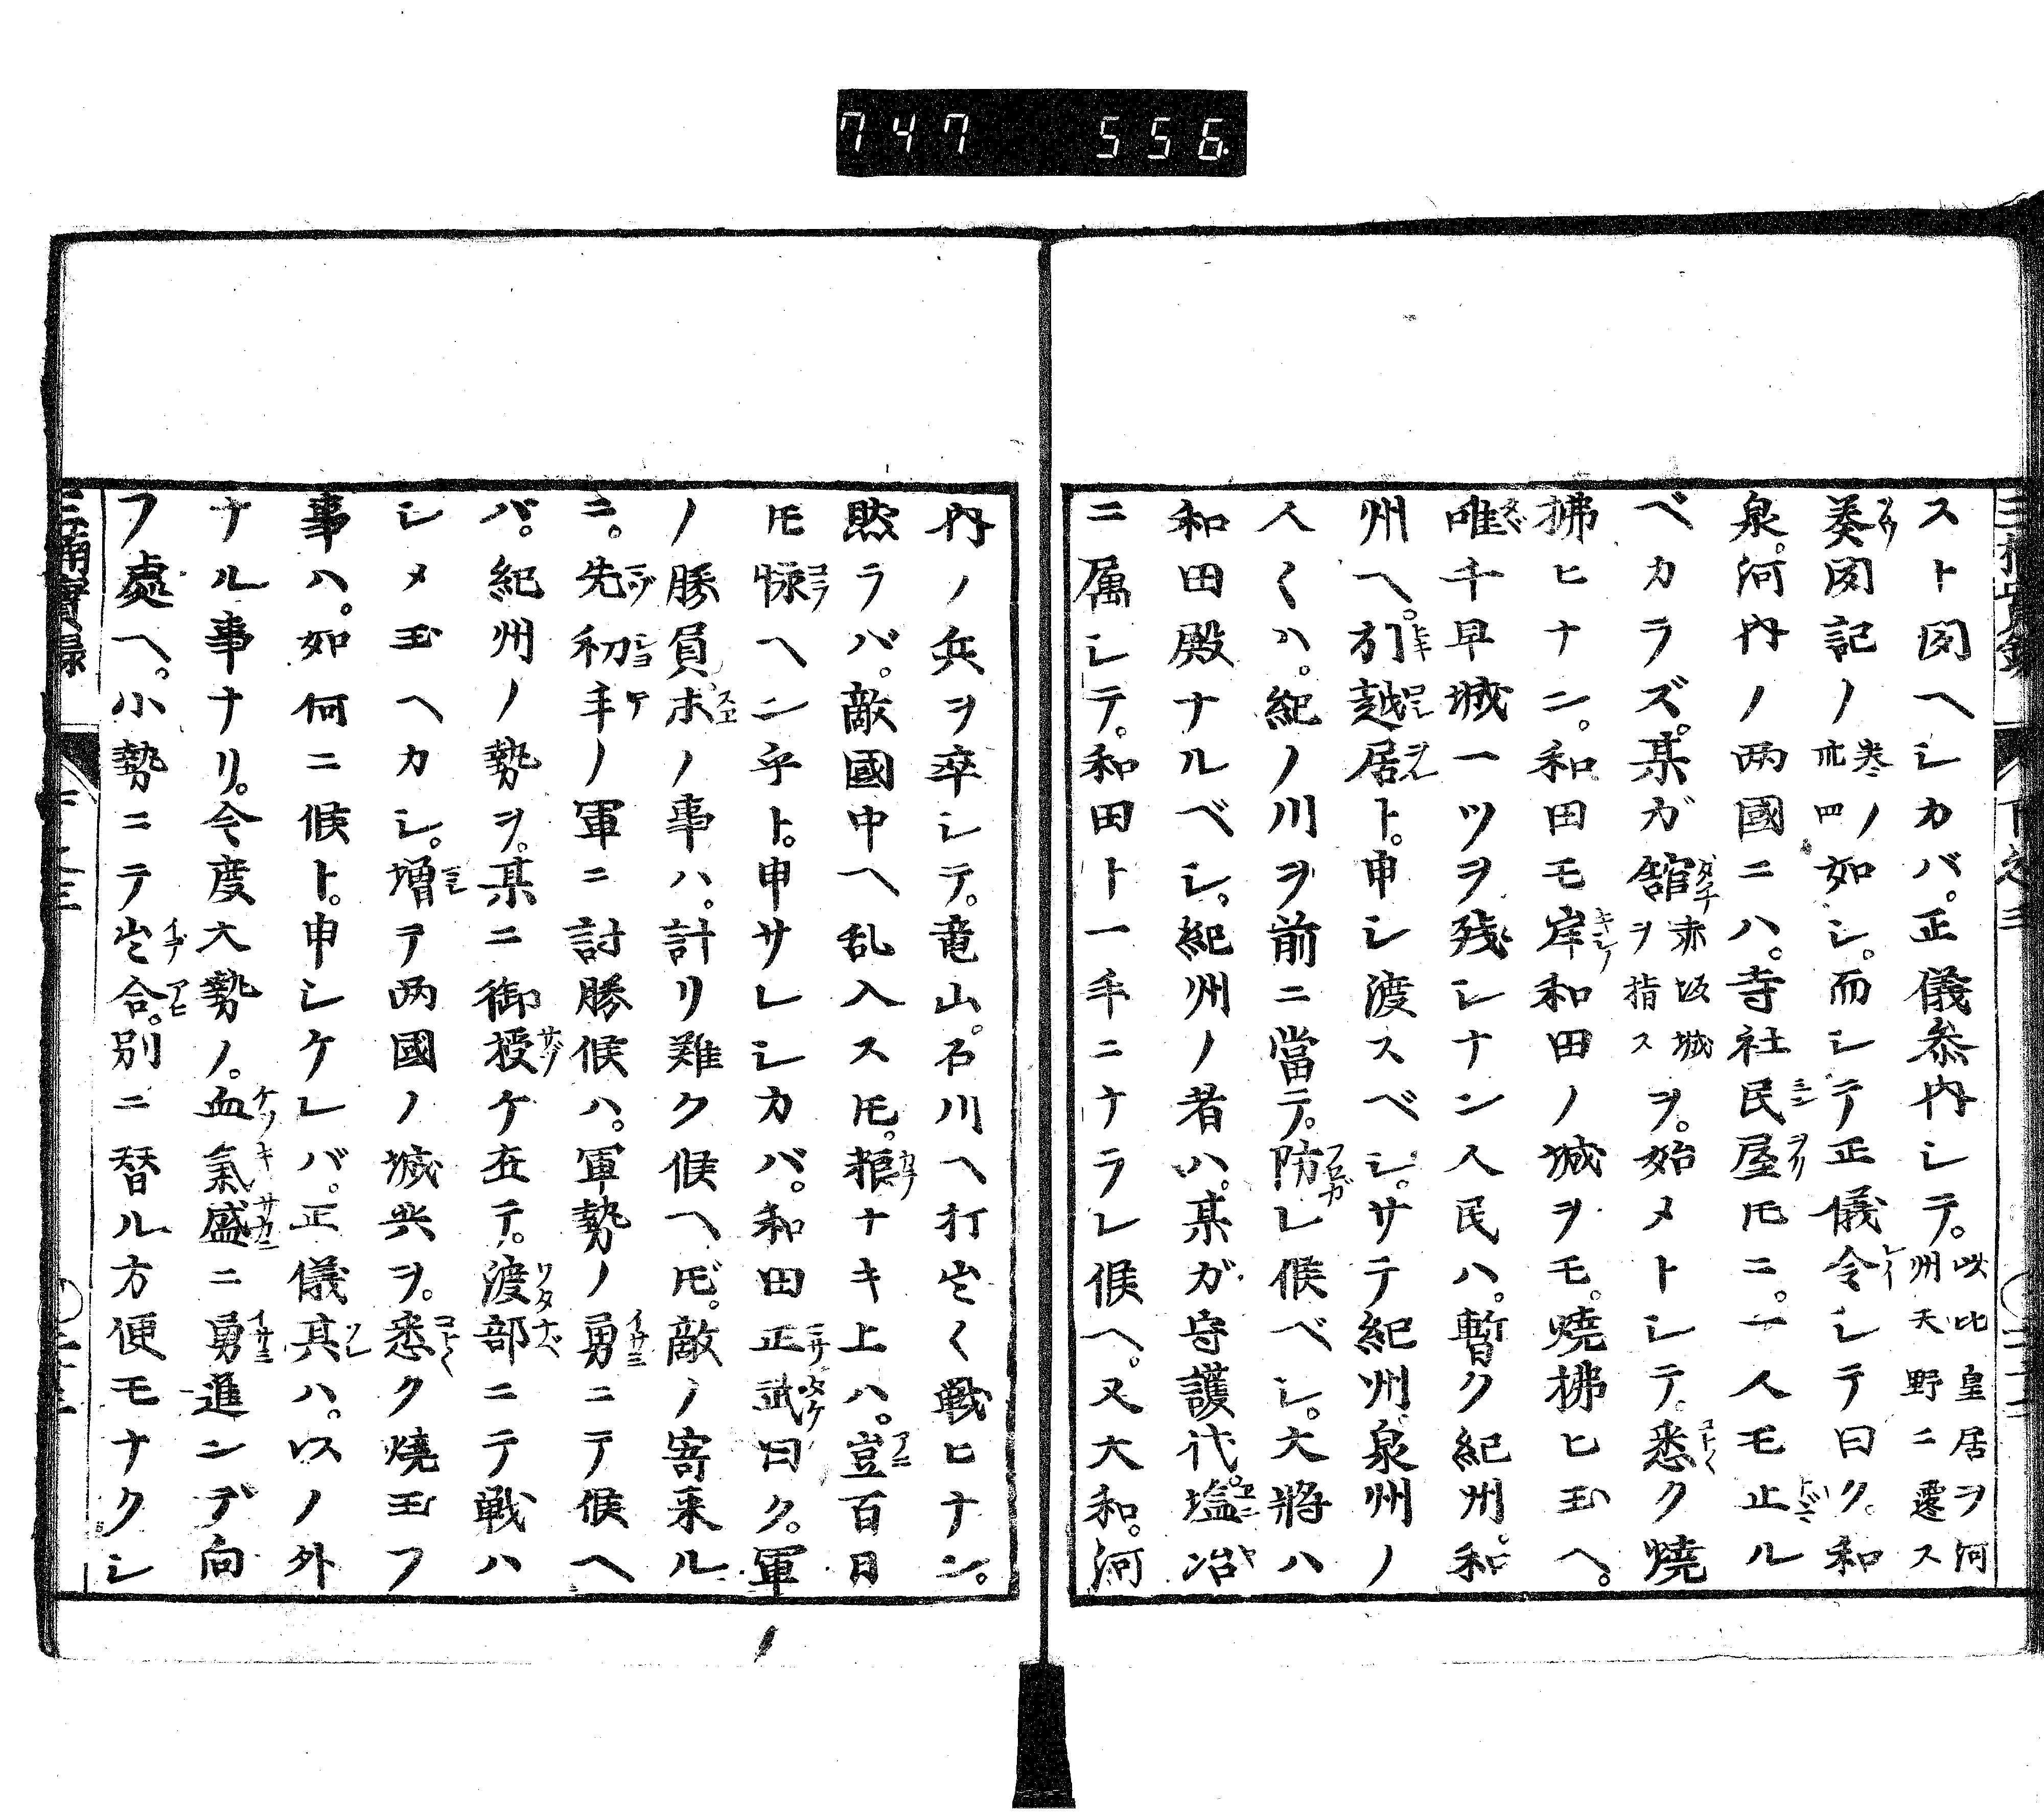 747 556
スト聞ヘシカバ。正儀参内シテ。此比皇居ヲ河州天野ニ遷ス
奏聞記ノ巻ノ卅四如シ。而シテ正儀令シテ曰ク。和
泉。河内ノ两國ニハ。寺社民屋𪜈ニ。一人モ止ル
ベカラズ。某ガ舘赤坂城ヲ指スヲ。始メトシテ。悉ク燒
拂ヒナン。和田モ岸和田ノ城ヲモ。燒拂ヒ玉ヘ。
唯千早城一ツヲ残シナン人民ハ。暫ク紀州。和
州ヘ。引越居ト。申シ渡スベシ。サテ紀州泉州ノ
人〱ハ。紀ノ川ヲ前ニ當テ。防レ候ベシ。大將ハ
和田殿ナルベシ。紀州ノ者ハ。某ガ守護代。塩冶
ニ属シテ。和田ト一手ニナラレ候ヘ。又大和。河
内ノ兵ヲ卒シテ。竜山。石川ヘ打出〱戦ヒナン。
然ラバ。敵國中ヘ乱入ス𪜈。粮ナキ上ハ。豈百日
𪜈怺ヘン乎ト。申サレシカバ。和田正武曰ク。軍
ノ勝負。末ノ事ハ。計リ難ク候ヘ𪜈。敵ノ寄来ル
ニ。先初手ノ軍ニ討勝候ハ。軍勢ノ勇ニテ候ヘ
バ。紀州ノ勢ヲ。某ニ御授ケ在テ。渡部ニテ戦ハ
シメ玉ヘカシ。増テ两國ノ城共ヲ。悉ク燒玉フ
事ハ。如何ニ候ト。申シケレバ。正儀其ハ。以ノ外
ナル事ナリ。今度大勢ノ。血氣盛ニ勇進ンデ向
フ處ヘ。小勢ニテ出合。別ニ替ル方便モナクシ